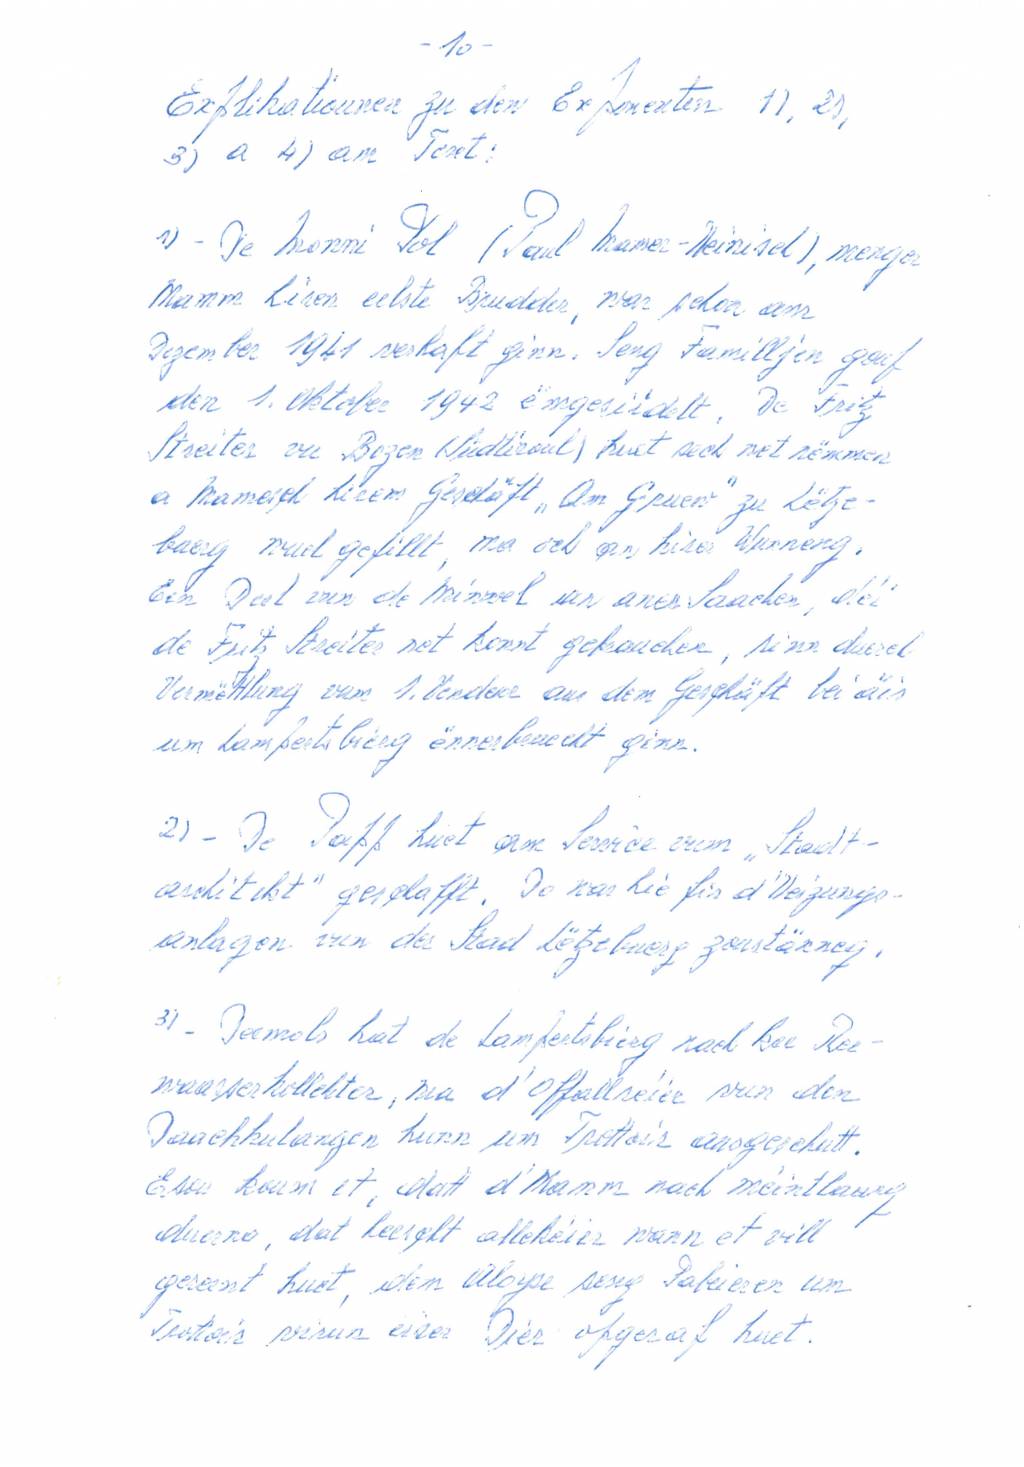 - 10 -
Explikatiounen zu den Exponenten 1), 2),
3) a 4) am Text:
1) - De Monni Pol (Paul Mamer-Heinisch), menger
Mamm hiren eelste Brudder, war schon am
Dezember 1941 verhaft ginn. Seng Familljen gouf
den 1. Oktober 1942 ëmgesiidelt. De Fritz
Streiter vu Bozen (Südtiroul) huet sech net nëmmen
a Mamesch hirem Geschäft „Am Gruew" zu Lëtze-
buerg wuel gefillt, ma och an hirer Wunneng.
Een Deel vun de Miwwel an aner Saachen, déi
de Fritz Streiter net konnt gebrauchen, sinn duerch
Vermëttlung vum 1. Vendeur aus dem Geschäft bei äis
um Lampertsbierg ënnerbruecht ginn.
2) - De Papp huet am Service vum „Stadt-
architekt" geschafft. Do war hie fir d'Heizungs-
anlagen vun der Stad Lëtzebuerg zoustänneg.
3) - Deemols hat de Lampertsbierg nach kee Ree-
waasserkollekter, ma d'Offallréier vun den
Daachkulangen hunn um Trottoir ausgeschutt.
Esou koum et, datt d'Mamm nach méintlaang
duerno, dat heescht allkéier wann et vill
gereent huet, dem Aloyse seng Pabeieren um
Trottoir virun eiser Dier opgeraf huet.